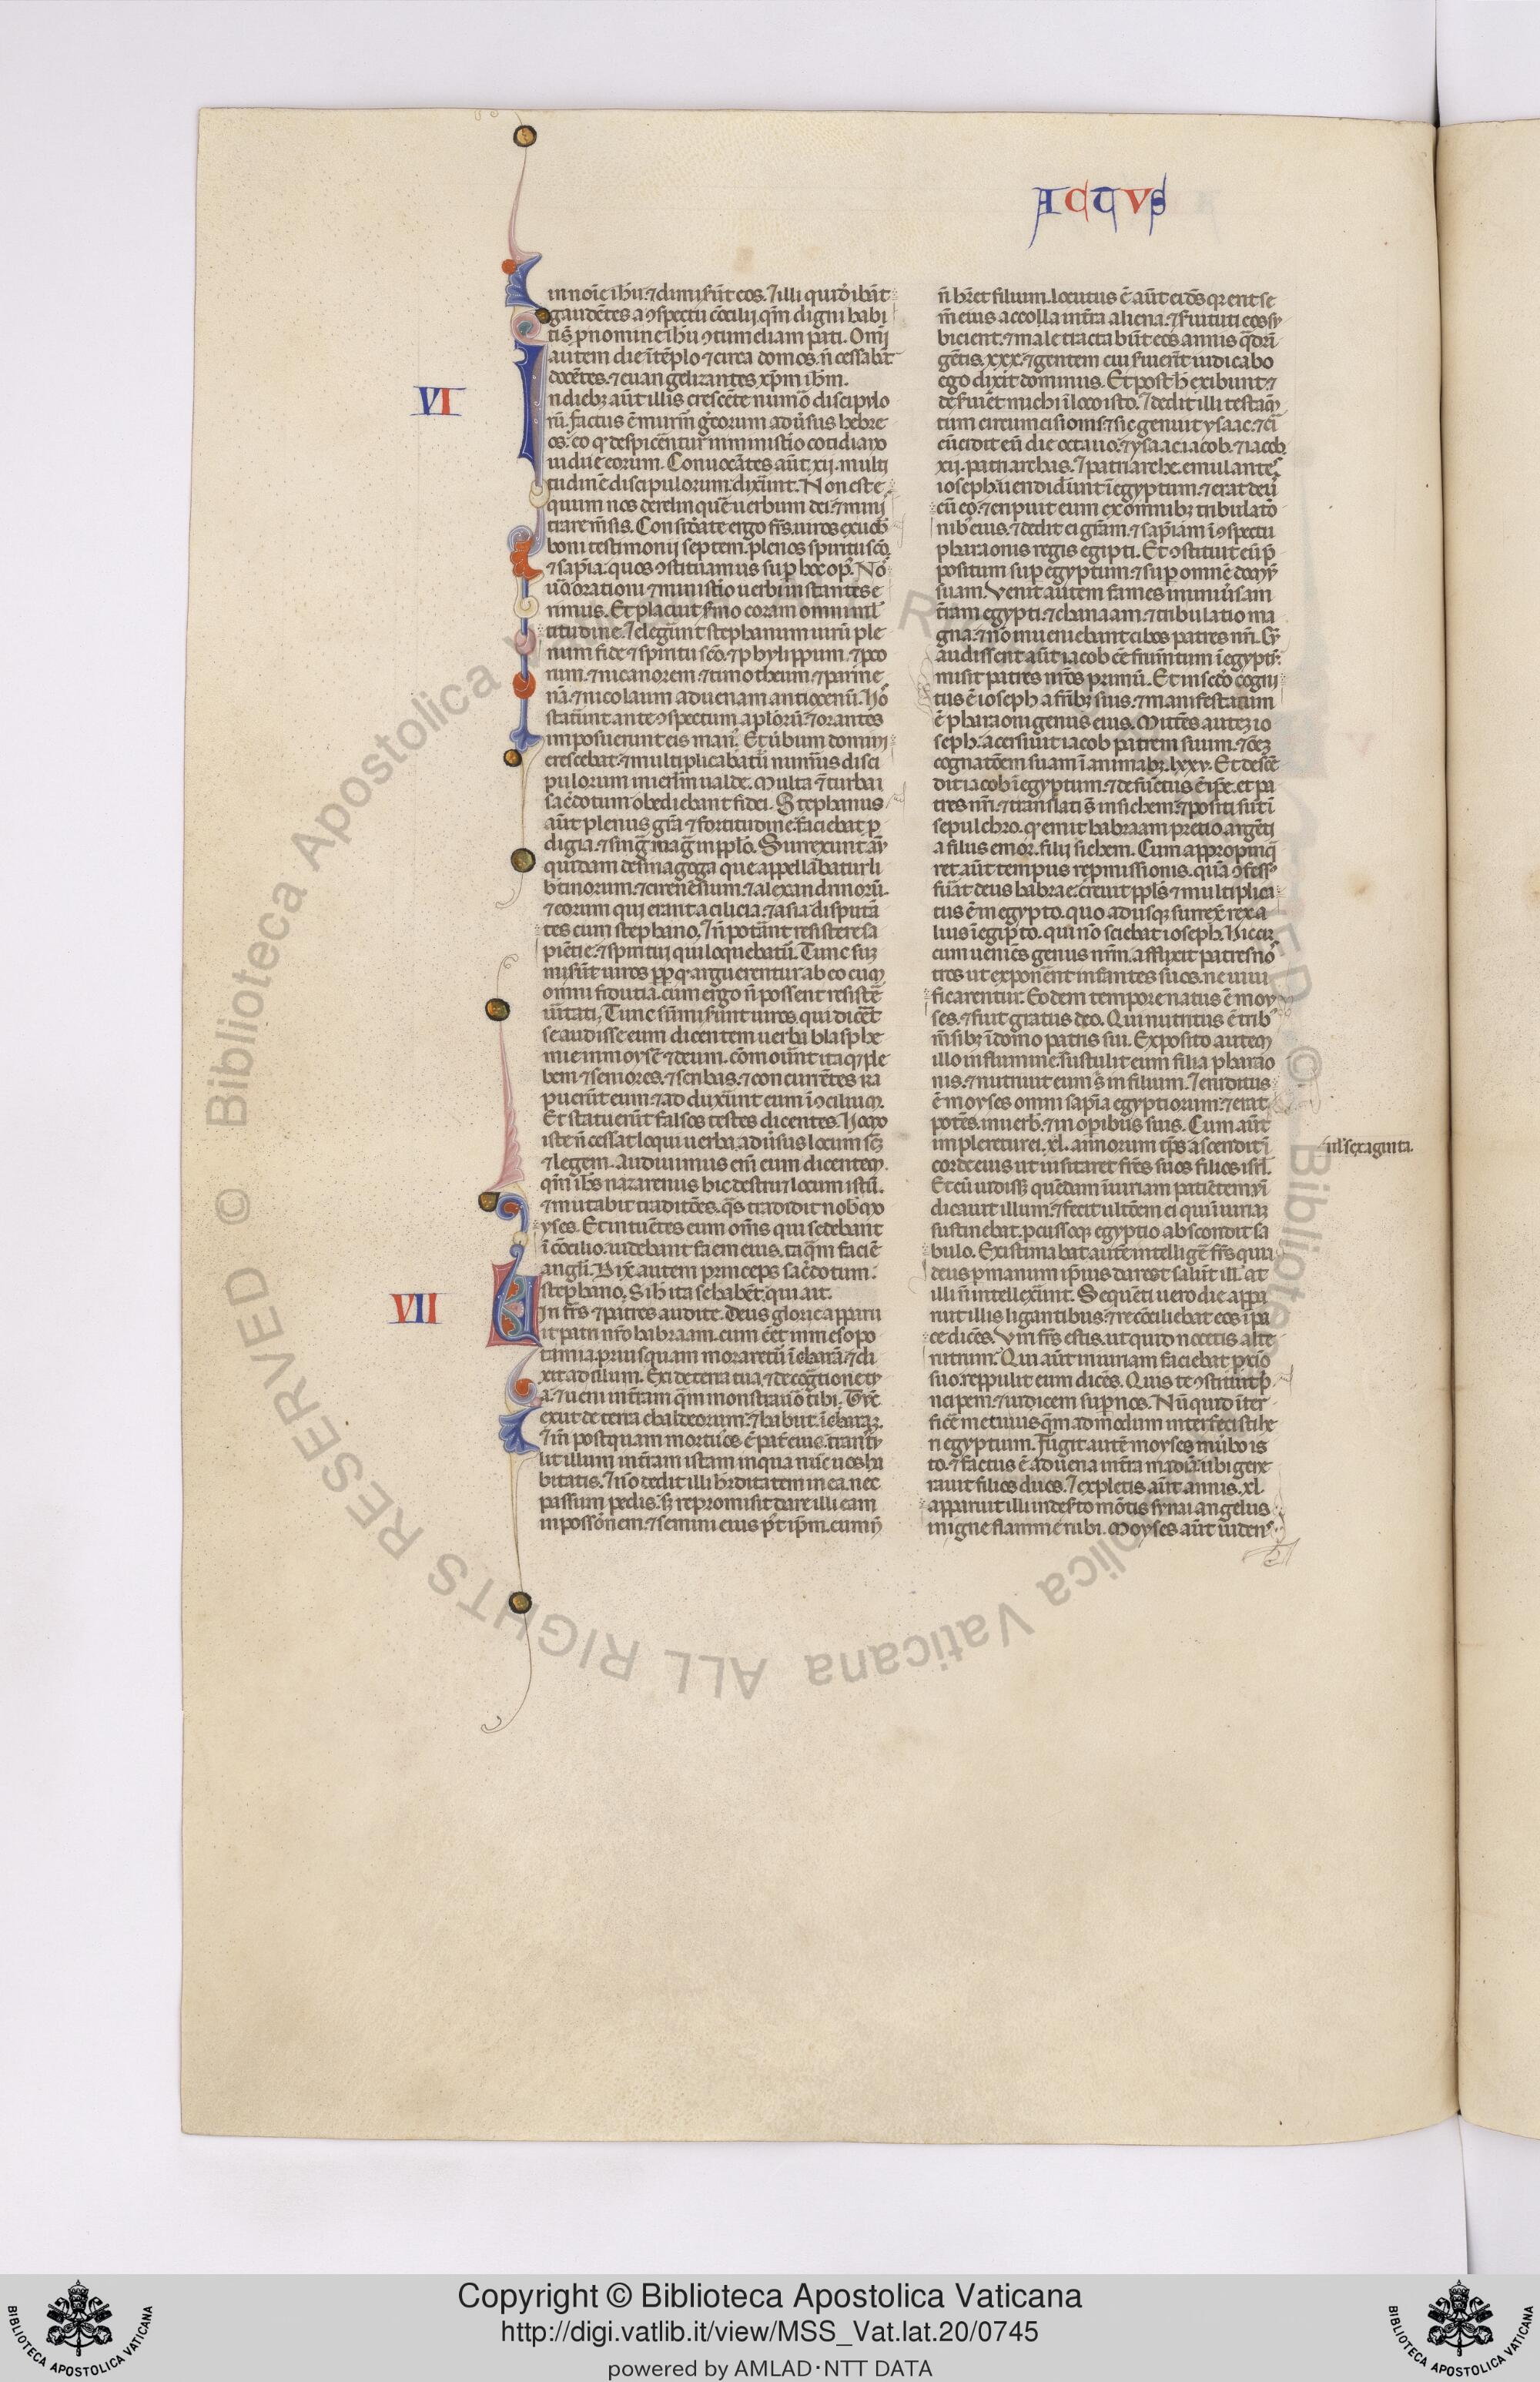 ACTUS
in noīe ihū. ⁊ dimiſer̄t eos. ⁊ illi quidē ibāt
gaudētes a ꝯſpectu ꝯcilij. qm̄ digni habi
ti ſt̄ p̱ nomine ihū ꝯtumeliam pati. Omī
autem die ī tēplo ⁊ circa domos. n̄ ceſſabāt
docētes. ⁊ euangelizantes xp̄m ihm̄.
VI
n dieb; aūt illis creſcēte numo᷑ diſcipulo
rū. factus ē murm᷑ grecorum aduſus hebre
os. eo ꝙ deſpicerentur in miniſtio cotidiano
uidue eorum. Conuocātes aūt xij. multi
tudinē diſcipulorum dixer̄unt. Non eſt e
quum nos derelinquē uerbum dei. ⁊ mini
ſtrare mēſis. Conſidate ergo frs̄. uiros ex uob᷒
boni teſtimonij ſeptem. plenos ſpiritu ſcō
⁊ ſapīa. quos ꝯſtituamus ſup hoc op᷒. Nos
u᷑o orationi ⁊ miniſtio uerbi inſtantes e
rimus. Et placuit ſmo coram omni ml᷑
titudine. ⁊ elegerūt ſtephanum uirū ple
num fide ⁊ ſpiritu ſcō. ⁊ phylippum. ⁊ pro
rum. ⁊ nicanorem. ⁊ timotheum. ⁊ parme
nā. ⁊ nicolaum aduenam antiocenū. hos
ſtatuer̄unt ante ꝯſpectum aploꝝ. ⁊ orantes
impoſuerunt eis man᷒. Et u᷑bum domini
creſcebat. ⁊ multiplicabatur num᷑us diſci
pulorum in ierlm̄ ualde. Multa ⁊ turba
ſacdotum obediebant fidei. Stephanus
aūt plenus grā ⁊ fortitudine. faciebat p̱
digia. ⁊ ſing̅ mag̅ in pplō. Surrexunt aūt
quidam de ſinagoga que appellabatur li
btinorum. ⁊ cirenēſium. ⁊ alexandrinorū.
⁊ eorum qui erant a cilicia. ⁊ aſia diſputā
tes cum ſtephano. ⁊ n̄ poterant reſiſtere ſa
piētie. ⁊ ſpiritui qui loquebatur. Tunc ſum
miſer̄t uiros qui arguerentur ab eo cum
omni fiducia. cum ergo n̄ poſſent reſiſte
u᷑itati. Tunc ſummiſer̄unt uiros. qui dicerēt
ſe audiſſe eum dicentem uerba blaſphe
mie in moyſē ⁊ deum. cōmouer̄unt itaꝙ ple
bem ⁊ ſeniores. ⁊ ſcribas. ⁊ concurrētes ra
puerūt eum. ⁊ adduxer̄unt eum ī ꝯcilium.
Et ſtatuerūt falſos teſtes dicentes. Homo
iſte n̄ ceſſat loqui uerba aduſus locum ſc̄m
⁊ legem. Audiuimus em̄ eum dicentem.
qm̄ ihs̄ nazarenus hic deſtruet locum iſtū.
⁊ mutabit traditōes. qs̄ tradidit nob᷒ mo
yſes. Et intuētes eum oms̄ qui ſedebant
ī ꝯcilio. uidebant faciem eius. taqm̄ faciē
angli. Dixit autem princeps ſacdotum
ſtephano. Si h̄ ita ſe habēt. qui ait.
VII
Uiri frs̄ ⁊ patres audite. Deus glorie apparu
it patri nr̄o habraam. cum eēt in meſopo
tamia. priuſquam moraretur ī charā. ⁊ di
xit ad illum. Exi de terra tua. ⁊ de cognatione tu
a. ⁊ ueni in t᷑ram qm̄ monſtrauero tibi. Tūc
exiit de terra chaldeorum. ⁊ habit. ī charam.
⁊ in̄ poſtquam mortuus ē pat᷑ eius. tranſtu
lit illum in t᷑ram iſtam in qua nūc uos ha
bitatis. ⁊ nō dedit illi h᷑ditatem in ea. nec
paſſum pedis. ſ; repromiſit dare illi eam
in poſſōnem. ⁊ ſemini eius p̄t ip̄m. cum
n̄ hrēt filium. locutus ē aūt ei ds̄ qr erit ſe
m̄ eius accolla in t᷑ra aliena. ⁊ ſeruituti eos ſu
bicient. ⁊ male tractabūt eos annis quadri
gētis. xxx. ⁊ gentem cui ſeruierīt iudicabo
ego dixit dominus. Et poſt h̄ exibunt. ⁊
deſeruiēt michi ī loco iſto. ⁊ dedit illi teſtam
tum circumciſionis. ⁊ ſic genuit yſaac. ⁊ cir
cūcidit eū die octauo. ⁊ yſaac iacob. ⁊ iacob
xij. patriarchas. ⁊ patriarche. emulantes
ioſeph. uendider̄unt ī egyptum. ⁊ erat deus
cū eo. ⁊ eripuit eum ex omnib; tribulatio
nib᷒ eius. ⁊ dedit ei grām. ⁊ ſapīam ī ꝯſpectu
pharaonis regis egipti. Et ꝯſtituit eū p̄
poſitum ſup egyptum. ⁊ ſup omnē domū
ſuam. Venit autem fames in uniu᷑ſam
t᷑ram egypti. ⁊ chanaam. ⁊ tribulatio ma
gna. ⁊ nō inueniebant cibos patres nr̄i. Cū
audiſſent aūt iacob eē frumentum ī egypto.
miſit patres nr̄os primū. Et in ſecō cogni
tus ē ioſeph a frīb; ſuis. ⁊ manifeſtatum
ē pharaoni genus eius. Mittēs autē io
ſeph. acerſiuit iacob patrem ſuum. ⁊ oēz
cognatōem ſuam ī animab; lxxv. Et deſcē
dit iacob ī egyptum. ⁊ defūctus ē iſpe. et pa
tres nr̄i. ⁊ tranſlati ſt̄ in ſichem. ⁊ poſiti ſūt ī
ſepulchro. ꝙ emit habraam pretio argēti
a filiis emor. filij ſichem. Cum appropinq̄
ret aūt tempus repmiſſionis. quā ꝯfeſſ᷒
fuāt deus habrae. creuit ppls̄ ⁊ multiplica
tus ē in egypto. quo aduſq; ſurrexit rex a
lius ī egipto. qui nō ſciebat ioſeph. Hic cir
cum ueniēs genus nr̄m. afflixit patres no
tros ut exponerent infantes ſuos. ne uiui
ficarentur. Eodem tempore natus ē moy
ſes. ⁊ fuit gratus deo. Qui nutritus ē trib᷒
mēſib; ī domo patris ſui. Expoſito autem
illo in flumine. ſuſtulit eum filia pharao
nis. ⁊ nutriuit eum ſ̄ in filium. ⁊ eruditus
ē moyſes omni ſapīa egyptiorum. ⁊ erat
potēs. in uerb᷒. ⁊ in opibus ſuis. Cum aūt
impleretur ei. xl. annorum tp̄s aſcendit ī
cor de eius ut uiſitaret frs̄ ſuos filios iſrl.
ul᷑ ſexaginta.
Et cū uidiſſ; quēdam iniuriam patiētem uī
dicauit illum. ⁊ fecit ultōem ei qui iniuriam
ſuſtinebat. pcuſſoq; egyptio abſcondit ſa
bulo. Exiſtimabat autē intelligē frs̄ quia
deus p manum ip̄ius daret ſalūt ill᷒. at
illi n̄ intellexer̄unt. Sequēti uero die appa
ruit illis litigantibus. ⁊ recōciliebat eos ī pa
ce dicēs. Viri frs̄ eſtis. ut quid nocetis alte
rutrum. Qui aūt iniuriam faciebat prīo
ſuo. reppulit eum dicēs. Quis te ꝯſtituit p̄n
cipem. ⁊ iudicem ſup nos. Nūquid īter
ficē me tu uis qm̄ ad modum interfeciſti he
ri egyptium. Fugit autē moyſes in u᷑bo iſ
to. ⁊ factus ē aduena in t᷑ra madiā. ubi gene
rauit filios duos. ⁊ expletis aūt annis. xl.
apparuit illi in deſerto mōtis ſynai angelus
in igne flamme rubi. Moyſes aūt uidens
Copyright © Biblioteca Apostolica Vaticana
http://digi.vatlib.it/view/MSS_Vat.lat.20/0745
powered by AMLAD·NTT DATA
BIBLIOTECA APOSTOLICA VATICANA
BIBLIOTECA APOSTOLICA VATICANA
© Biblioteca Apostolica Vaticana ALL RIGHTS RESERVED